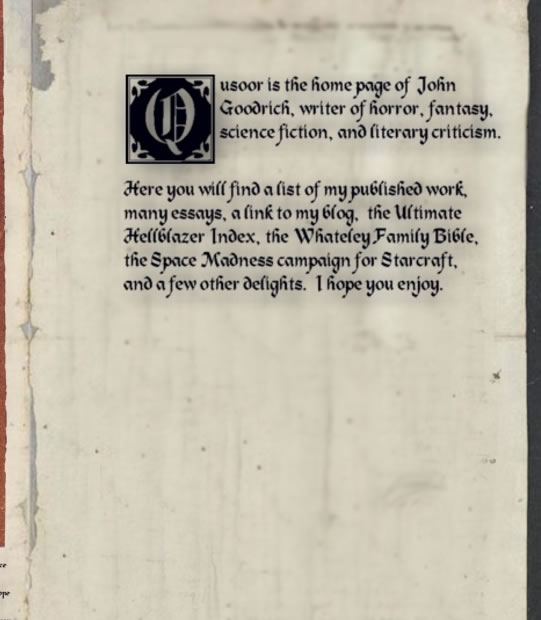 Qusoor is the home page of John
Goodrich, writer of horror, fantasy,
science fiction, and literary criticism.
Here you will find a list of my published work,
many essays, a link to my blog, the Ultimate
Hellblazer Index, the Whateley Family Bible,
the Space Madness campaign for Starcraft,
and a few other delights. I hope you enjoy.